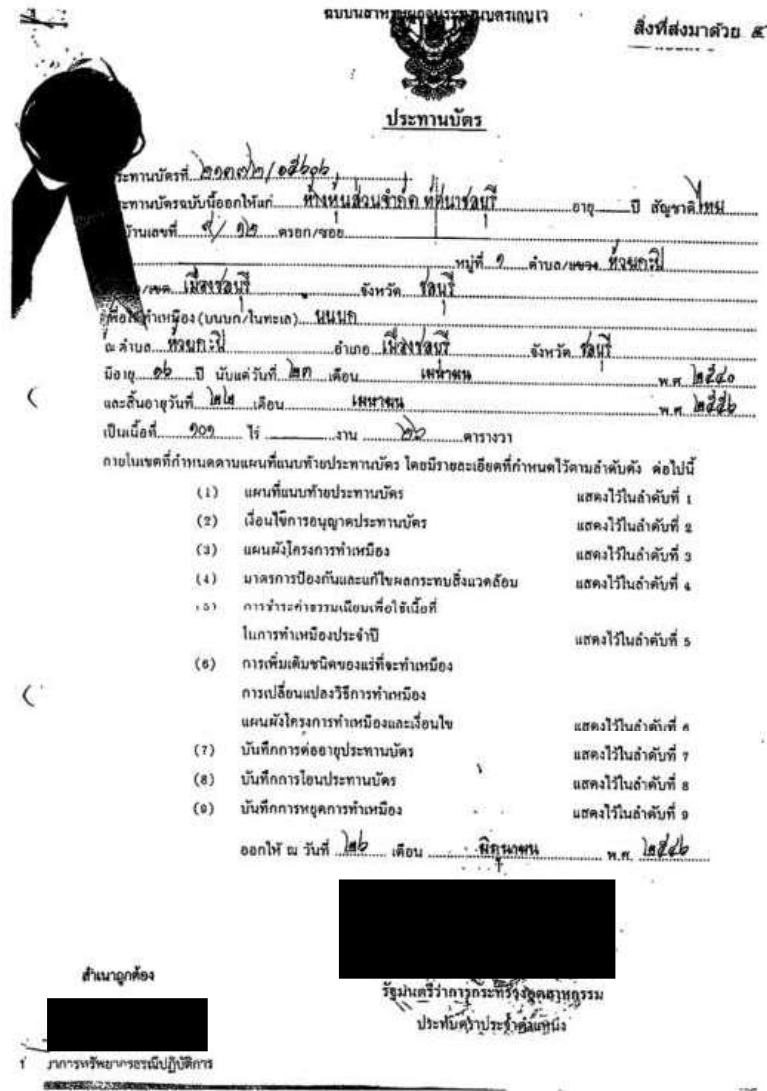 ฉบับนี้สำหรับผู้ถือประทานบัตรเก็บไว้
สิ่งที่ส่งมาด้วย ๕
ประทานบัตร
ประทานบัตรที่ ๒๑๓๗๒/๑๕๖๐๖
ประทานบัตรฉบับนี้ออกให้แก่ ห้างหุ้นส่วนจำกัด ทัศนาชลบุรี อายุ ปี สัญชาติ ไทย
บ้านเลขที่ ๙/๑๒ ตรอก/ซอย
หมู่ที่ ๑ ตำบล/แขวง ห้วยกะปิ
/เขต เมืองชลบุรี จังหวัด ชลบุรี
เพื่อใช้ทำเหมือง (บนบก/ในทะเล) บนบก
ณ ตำบล ห้วยกะปิ อำเภอ เมืองชลบุรี จังหวัด ชลบุรี
มีอายุ ๑๖ ปี นับแต่วันที่ ๒๓ เดือน เมษายน พ.ศ. ๒๕๔๐
และสิ้นอายุวันที่ ๒๒ เดือน เมษายน พ.ศ. ๒๕๕๖
เป็นเนื้อที่ ๑๐๑ ไร่ งาน ๒๖ ตารางวา
ภายในเขตที่กำหนดตามแผนที่แนบท้ายประทานบัตร โดยมีรายละเอียดที่กำหนดไว้ตามลำดับดัง ต่อไปนี้
(1) แผนที่แนบท้ายประทานบัตร แสดงไว้ในลำดับที่ 1
(2) เงื่อนไขการอนุญาตประทานบัตร แสดงไว้ในลำดับที่ 2
(3) แผนผังโครงการทำเหมือง แสดงไว้ในลำดับที่ 3
(4) มาตรการป้องกันและแก้ไขผลกระทบสิ่งแวดล้อม แสดงไว้ในลำดับที่ 4
(5) การชำระค่าธรรมเนียมเพื่อใช้เนื้อที่
ในการทำเหมืองประจำปี แสดงไว้ในลำดับที่ 5
(6) การเพิ่มเติมชนิดของแร่ที่จะทำเหมือง
การเปลี่ยนแปลงวิธีการทำเหมือง
แผนผังโครงการทำเหมืองและเงื่อนไข แสดงไว้ในลำดับที่ 6
(7) บันทึกการต่ออายุประทานบัตร แสดงไว้ในลำดับที่ 7
(8) บันทึกการโอนประทานบัตร แสดงไว้ในลำดับที่ 8
(9) บันทึกการหยุดการทำเหมือง แสดงไว้ในลำดับที่ 9
ออกให้ ณ วันที่ ๒๖ เดือน มิถุนายน พ.ศ. ๒๕๔๖
สำเนาถูกต้อง
รัฐมนตรีว่าการกระทรวงอุตสาหกรรม
ประทับตราประจำตำแหน่ง
ทรัพยากรธรณีปฏิบัติการ